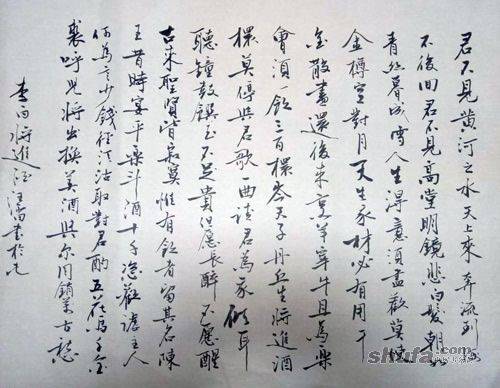 君不見黄河之水天上來奔流到海
不復回君不見高堂明鏡悲白髮朝如
青絲暮成雪人生得意須盡歡莫使
金樽空對月天生我材必有用千
金散盡還復來烹羊宰牛且為樂
會須一飲三百杯岑夫子丹丘生將進酒
杯莫停與君歌一曲請君為我傾耳
聽鐘鼓饌玉不足貴但愿長醉不愿醒
古來聖賢皆寂寞惟有飲者留其名陳
王昔時宴平樂斗酒十千恣歡謔主人
何為言少錢徑須沽取對君酌五花馬千金
裘呼兒將出換美酒與爾同銷萬古愁
李白將進酒汪書於
shufa.com